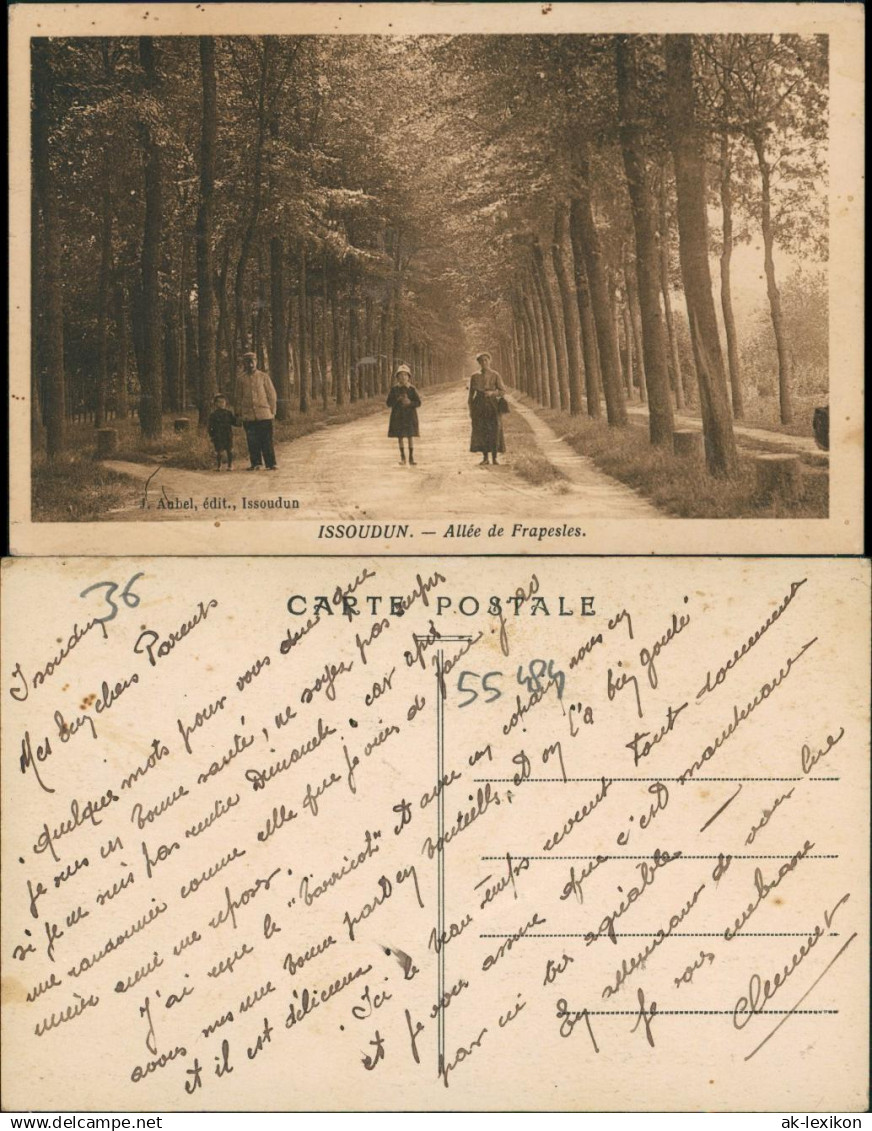 J. Aubel, édit., Issoudun
ISSOUDUN. — Allée de Frapesles.
CARTE POSTALE
36
55484
Issoudun
Mes biens chers Parents
Quelques mots pour vous dire que
je suis en bonne santé, ne soyez pas surpris
si je ne suis pas rentré Dimanche, car après
une randonnée comme celle que je viens de faire j'ai
mieux aimé me reposer.
J'ai reçu le "barricot" et avec un copain nous en
avons mis une bonne part en bouteilles, et on l'a bien goûté
et il est délicieux.
Ici le beau temps revient tout doucement
et je vous assure que c'est maintenant
par ici très agréable —
En attendant de vous lire
Je vous embrasse
ak-lexikon